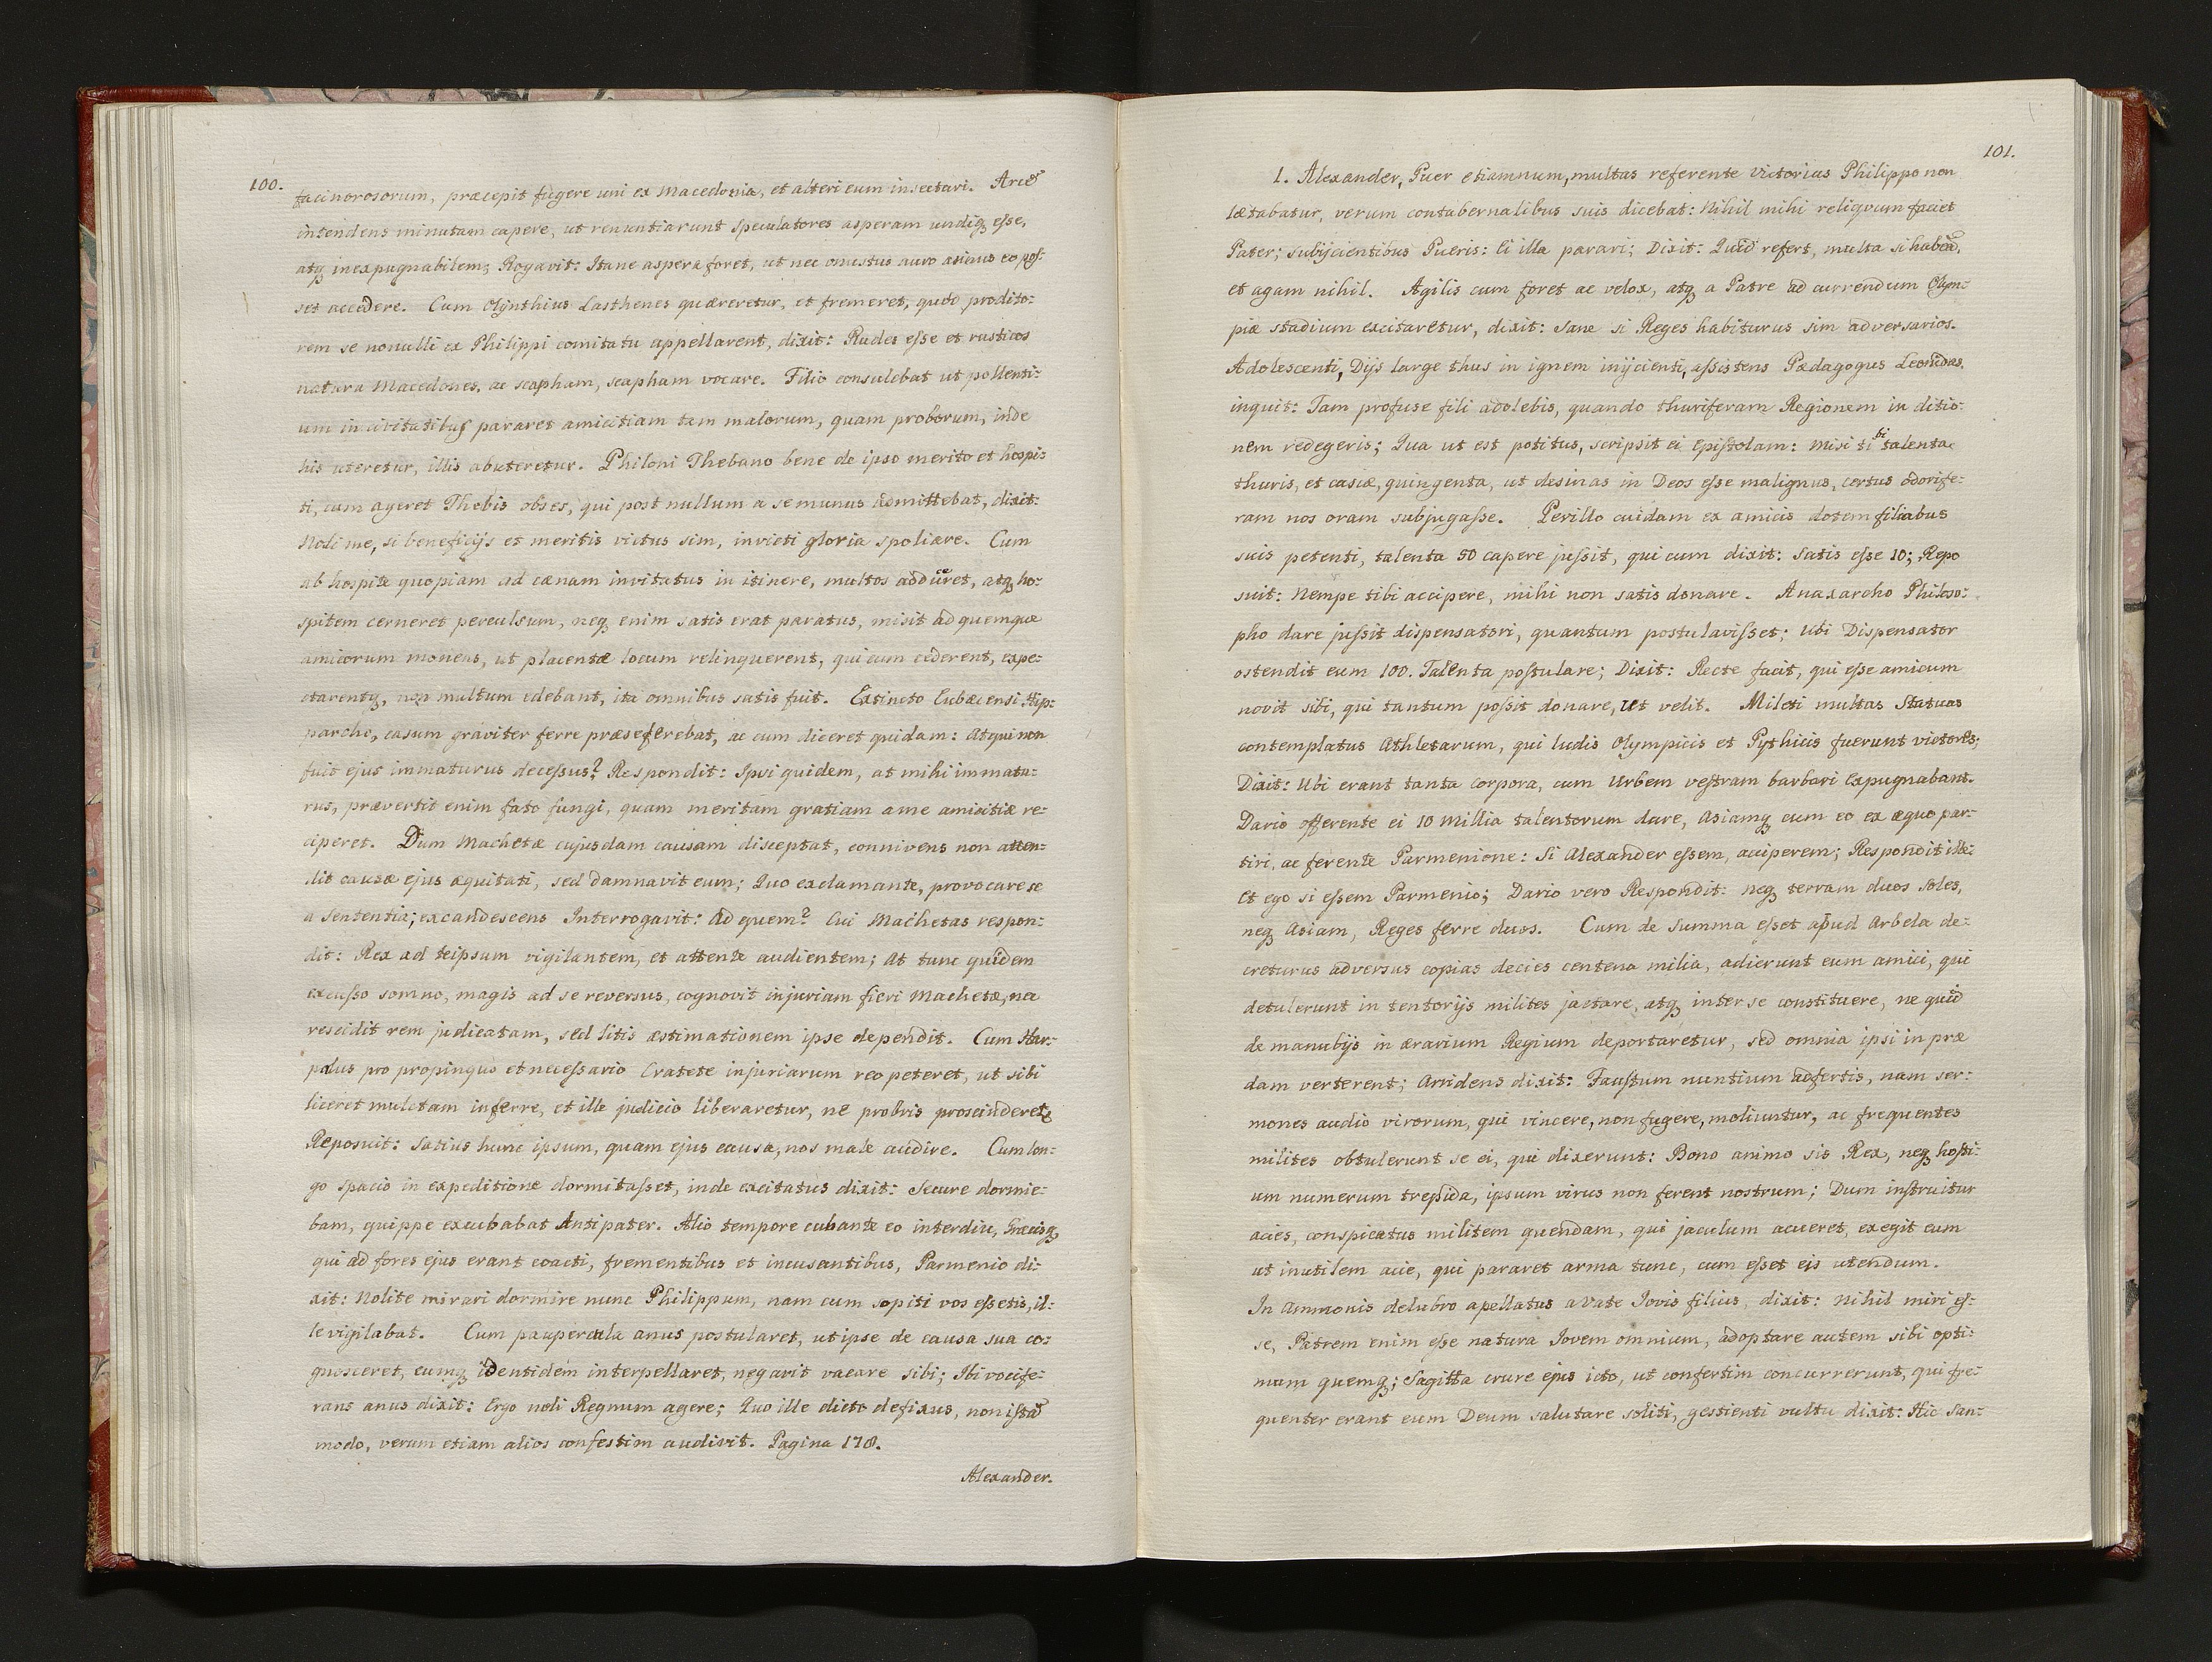 100.
facinorosorum, præcepit fugere uni ex Macedonia, et alteri eum insectari. Arcē
intendens minutam capere, ut renuntiarunt Speculatores asperam undiq; esse,
atq; inexpugnabilem; Rogavit: Itane aspera foret, ut nec onustus auro asinus eo pos:
set accedere. Cum Olÿnthius Lasthenes quæreretur, et fremeret, quod prodito:
rem se nonulli ex Philippi comitatu appellarent, dixit: Rudes esse et rusticos
natura Macedones, ac scapham, scapham vocare. Filio consulebat ut pollenti:
um in civitatibus pararet amicitiam tam malorum, quam proborum, inde
his uteretur, illis abuteretur. Philoni Thebano bene de ipso merito et hospi:
ti, cum ageret Thebis obses, qui post nullum a se munus admittebat, dixit:
Noli me, si beneficijs et meritis victus sim, invicti gloria spoliare. Cum
ab hospite quopiam ad cænam invitatus in itinere, multos adduceret, atq; ho:
spitem cerneret perculsum, neq; enim satis erat paratus, misit ad quemque
amicorum monens, ut placentæ locum relinquerent, qui cum cederent, expe:
ctarentq;, non multum edebant, ita omnibus satis fuit. Extincto Eubæensi Hip:
parcho, casum graviter ferre præseferebat, ac cum diceret quidam: Atqui non
fuit ejus immaturus decessus? Respondit: Ipsi quidem, at mihi immatu:
rus, prævertit enim fato fungi, quam meritam gratiam a me amicitiæ re:
ciperet. Dum Machetæ cujusdam causam disceptat, connivens non atten:
dit causæ ejus æquitati, sed damnavit eum; Quo exclamante, provocare se
a Sententia; excandescens Interrogavit: Ad quem? Cui Machetas respon:
dit: Rex ad teipsum vigilantem, et attente audientem; At tunc quidem
excusso somno, magis ad se reversus, cognovit injuriam fieri Machetæ, nec
rescidit rem judicatam, sed litis æstimationem ipse dependit. Cum Har:
palus pro propinquo et necessario Cratete injuriarum reo peteret, ut sibi
liceret mulctam inferre, et ille judicio liberaretur, ne probris proscinderet;
Reposuit: Satius hunc ipsum, quam ejus causa, nos male audire. Cum lon:
go spacio in expeditione dormitasset, inde excitatus dixit: Secure dormie:
bam, quippe excubabat Antipater. Alio tempore cubante eo interdiu, Græcisq;
qui ad fores ejus erant coacti, frementibus et incusantibus, Parmenio di:
xit: Nolite mirari dormire nunc Philippum, nam cum sopiti vos essetis, il:
le vigilabat. Cum paupercula anus postularet, ut ipse de causa sua co:
gnosceret, eumq; identidem interpellaret, negavit vacare sibi; Ibi vocife:
rans anus dixit: Ergo noli Regnum agere; Quo ille dicto defixus, non istā
modo, verum etiam alios confestim audivit. Pagina 178.
Alexander.
101.
1. Alexander, Puer etiamnum, multas referente victorias Philippo non
lætabatur, verum contubernalibus suis dicebat: Nihil mihi reliqvum faciet
Pater; subijcientibus Pueris: Ei illa parari; Dixit: Quid refert, multa si habeā,
et agam nihil. Agilis cum foret ac velox, atq; a Patre ad currendum Olym:
piæ stadium excitaretur, dixit: Sane si Reges habiturus sim adversarios.
Adolescenti, Dijs large thus in ignem inijcienti, assistens Pædagogus Leonidas,
inquit: Tam profuse fili adolebis, quando thuriferam Regionem in ditio:
nem redegeris; Qua ut est potitus, scripsit ei Epistolam: Misi tibi talenta
thuris, et casiæ, quingenta, ut desinas in Deos esse malignus, certus odorife:
ram nos oram subjugasse. Perillo cuidam ex amicis dotem filiabus
suis petenti, talenta 50 capere jussit, qui cum dixit: Satis esse 10; Repo
suit: Nempe tibi accipere, mihi non satis donare. Anaxarcho Philoso:
pho dare jussit dispensatori, quantum postulavisset; Ubi Dispensator
ostendit eum 100. Talenta postulare; Dixit: Recte facit, qui esse amicum
novit sibi, qui tantum possit donare, ut velit. Mileti multas Statuas
contemplatus Athletarum, qui ludis Olympicis et Pythicis fuerunt victores;
Dixit: Ubi erant tanta corpora, cum Urbem vestram barbari expugnabant.
Dario offerente ei 10 millia talentorum dare, Asiamq; cum eo ex æquo par:
tiri, ac ferente Parmenione: Si Alexander essem, acciperem; Respondit ille:
Et ego si essem Parmenio; Dario vero Respondit: neq; terram duos Soles,
neq; Asiam, Reges ferre duos. Cum de Summa esset apud Arbela de:
creturus adversus copias decies centena milia, adierunt eum amici, qui
detulerunt in tentorijs milites jactare, atq; inter se constituere, ne quid
de manubijs in ærarium Regium deportaretur, sed omnia ipsi in præ
dam verterent; Arridens dixit: Faustum nuntium adfertis, nam ser:
mones audio virorum, qui vincere, non fugere, moliuntur, ac frequentes
milites obtulerunt se ei, qui dixerunt: Bono animo sis Rex, neq; hosti:
um numerum trepida, ipsum virus non ferent nostrum; Dum instruitur
acies, conspicatus militem quendam, qui jaculum acueret, exegit eum
ut inutilem acie, qui pararet arma tunc, cum esset eis utendum.
In Ammonis delubro apellatus a Vate Iovis filius, dixit: Nihil miri es:
se, Patrem enim esse natura Iovem omnium, adoptare autem sibi opti:
mum quemq;; Sagitta crure ejus icto, ut confertim concurrerunt, qui fre:
quenter erant eum Deum salutare soliti, gestienti vultu dixit: Hic San: